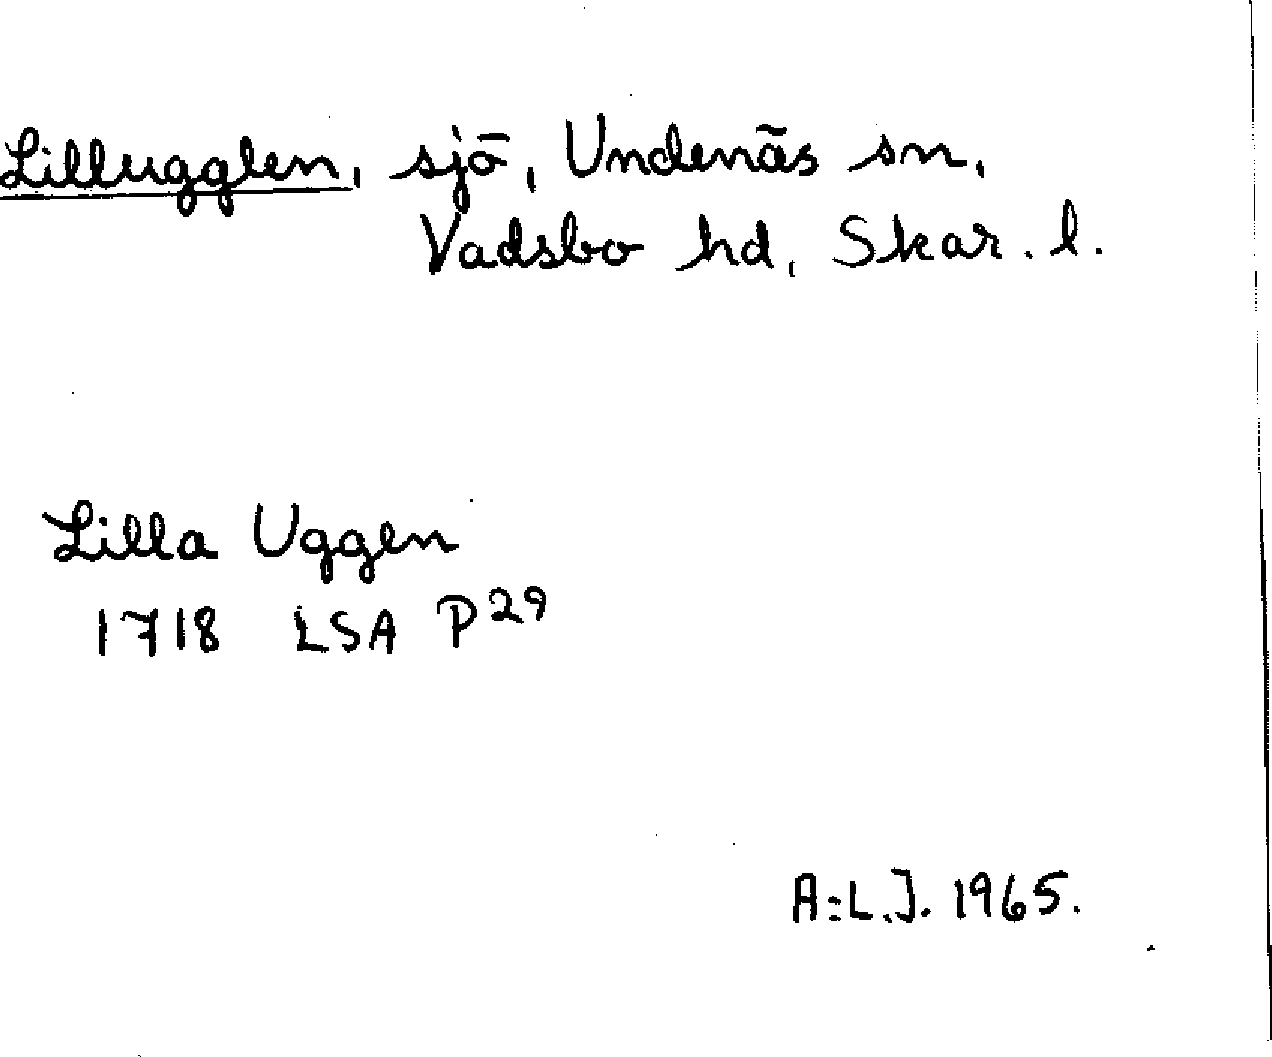 Lillugglen, sjö, Undenäs sn,
Vadsbo hd, Skar. l.
Lilla Uggen
1718 LSA P29
A:L.J. 1965.